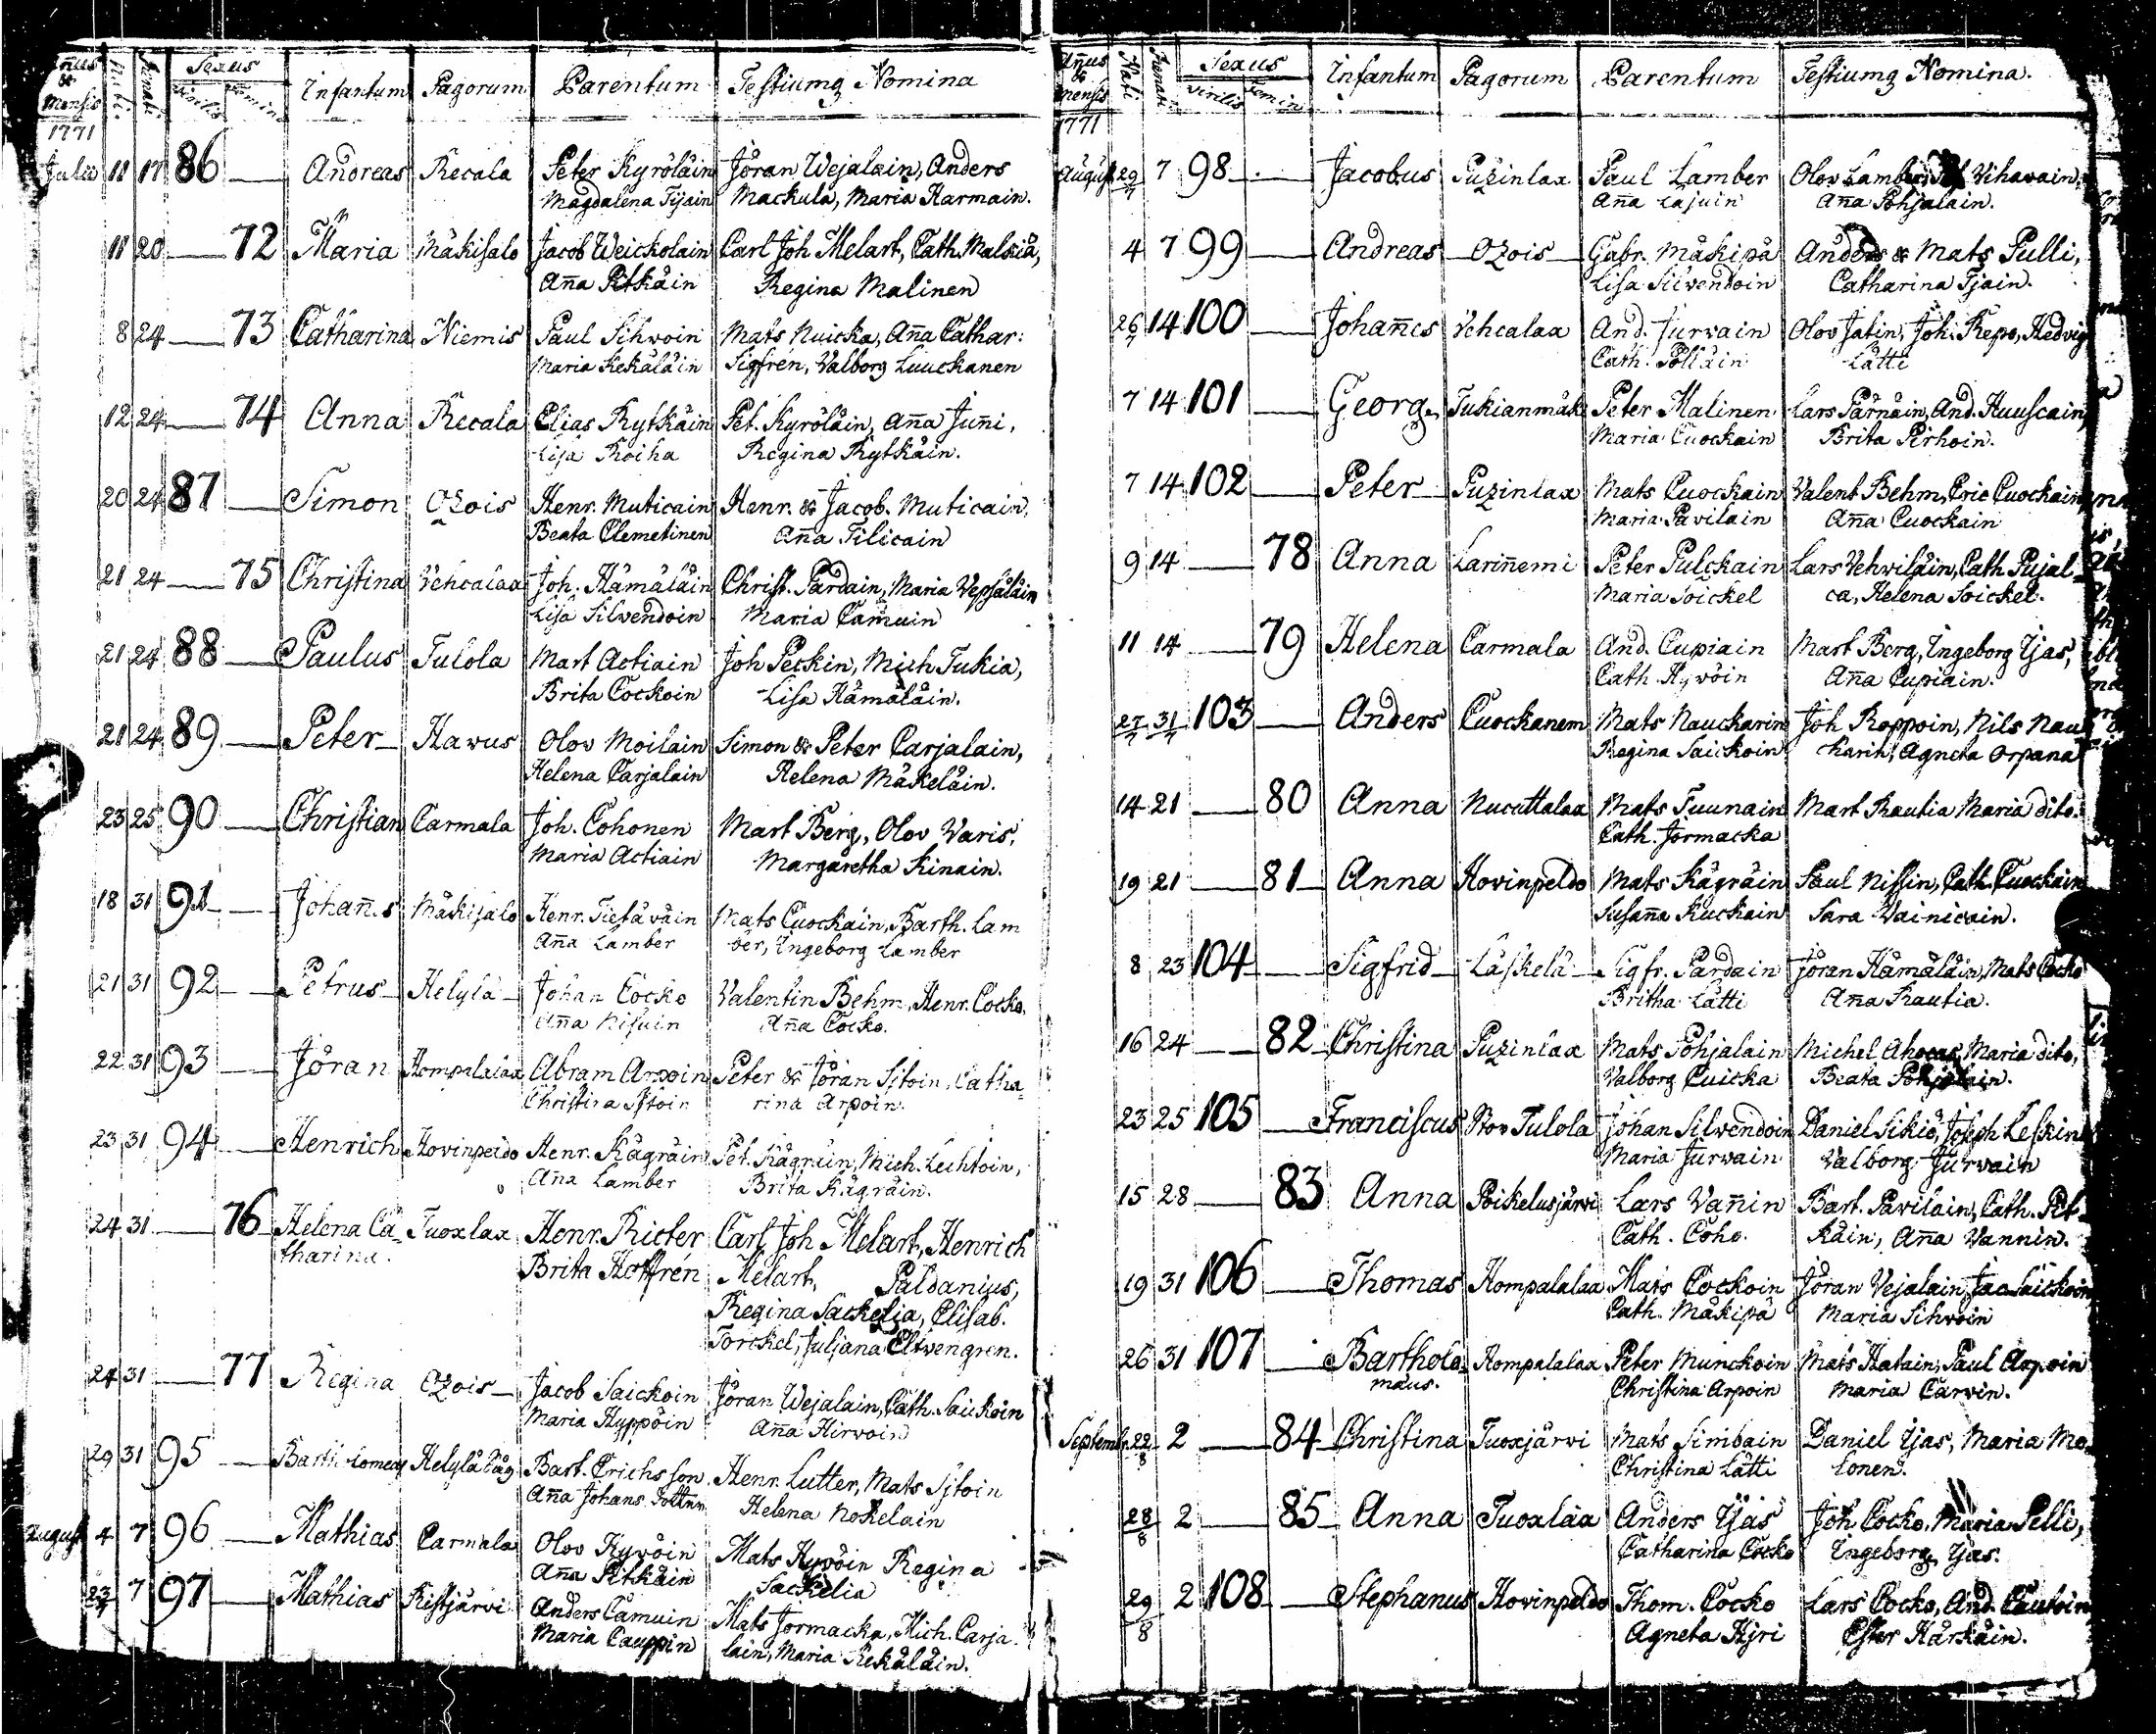 Añus & Mensis Nati Renati Sexus Virilis Femin Infantum Pagorum Parentum Testiumq Nomina
1771
Julii 11 17 86 Andreas Recala Peter Kyröläin Jöran Wejalain, Anders
Magdalena Tijain Mackula, Maria Harmain.
11 20 72 Maria Mäkisalo Jacob Weickolain Carl Joh Melart, Cath. Malkiä,
Aña Pitkäin Regina Malinen
8 24 73 Catharina Niemis Paul Sihvoin Mats Nuicka, Aña Cathar:
Maria Kekäläin Sigfrén, Valborg Luuckanen
12 24 74 Anna Recala Elias Rytkäin Pet. Kyröläin, Aña Juñi,
Lisa Roiha Regina Rytkäin.
20 24 87 Simon Ozois Henr. Muticain Henr. & Jacob. Muticain,
Beata Clemetinen Aña Tilicain
21 24 75 Christina Vehcalax Joh. Hämäläin Christ. Pärdain, Maria Vepsäläin
Lisa Silvendoin Maria Camuin
21 24 88 Paulus Tulola Mart Actiain Joh Peckin, Mich Tukia,
Brita Cockoin Lisa Hämäläin.
21 24 89 Peter Havus Olov Moilain Simon & Peter Carjalain,
Helena Carjalain Helena Mäkeläin.
23 25 90 Christian Carmala Joh. Cohonen Mart Berg, Olov Varis,
Maria Actiain Margaretha Kinain.
18 31 91 Johañes Mäkisalo Henr. Tietäväin Mats Cuockain, Barth. Lam
Aña Lamber ber, Ingeborg Lamber
21 31 92 Petrus Helylä Johan Cocko Valentin Behm, Henr. Cocko,
Aña Nisuin Aña Cocko.
22 31 93 Jöran Hompalalax Abram Arpoin Peter & Jöran Sitoin, Catha
Christina Sitoin rina Arpoin.
23 31 94 Henrich Hovinpeldo Henr. Kägräin Pet. Kägräin, Mich. Lechtoin,
Aña Lamber Brita Kägräin.
24 31 76 Helena Ca Tuoxlax Henr. Ricter Carl Joh Melart, Henrich
tharina. Brita Hoffrén Melart, Paldanius,
Regina Sackelia, Elisab.
Torckel, Juliana Elfvengren.
24 31 77 Regina Ozois Jacob Saickoin Jöran Wejalain, Cath. Saickoin
Maria Hyppöin Aña Hirvoin
29 31 95 Bartholomeus Helylä Såg Bart. Erichsson Henr. Lutter, Mats Sitoin
Aña Johans Helena Nokelain
August 4 7 96 Mathias Carmala Olov Hyvöin Mats Hyvöin Regina
Aña Pitkäin Sackelia
23/7 7 97 Mathias Ristjärvi Anders Camuin Mats Jormacka, Mich. Carja
Maria Cauppin lain, Maria Kekäläin.
Añus & Mensis Nati Renati Sexus Virilis Femin Infantum Pagorum Parentum Testiumq Nomina.
1771
August 29/7 7 98 Jacobus Puzinlax Paul Lamber Olov Lamber, Vihavain,
Aña Lajuin Aña Pohjalain.
4 7 99 Andreas Ozois Gabr. Mäkipä Anders & Mats Pulli,
Lisa Silvendoin Catharina Tjain.
26/7 14 100 Johañes Vehcalax And. Jurvain Olov Jatin, Joh. Repo, Hedvig
Cath. Pölläin Lätti
7 14 101 Georg. Tukianmäk Peter Malinen Lars Pärnäin, And. Huuscain,
Maria Cuockain Brita Pirhoin.
7 14 102 Peter Puzinlax Mats Cuockain Valent Behm, Eric Cuockain
Maria Pavilain Aña Cuockain
9 14 78 Anna Lariñemi Peter Pulckain Lars Vehviläin, Cath Pujal
Maria Soickel ca, Helena Soickel.
11 14 79 Helena Carmala And. Cupiain Mart Berg, Ingeborg Ijas,
Cath. Hyvöin Aña Cupiain.
27/7 31/7 103 Anders Cuockanem Mats Nauckarin Joh Roppoin, Nils Nau
Regina Saickoin charin, Agneta Orpana
14 21 80 Anna Nucuttalax Mats Tuunain Mart Rautia Maria dito.
Cath. Jormacka
19 21 81 Anna Hovinpeldo Mats Kägräin Paul Nissin, Cath. Cuockain
Susaña Kuckain Sara Vainicain.
8 23 104 Sigfrid Läskelä Sigfr. Pärdain Jöran Hämäläin, Mats Cocko
Britha Lätti Aña Rautia.
16 24 82 Christina Puzinlax Mats Pohjalain Michel Ahocas, Maria dito,
Valborg Cuicka Beata Pohjalain.
23 25 105 Franciscus Stor Tulola Johan Silvendoin Daniel Sikiö, Joseph Leskin
Maria Jurvain Valborg Jurvain
15 28 83 Anna Poikelusjärvi Lars Vañin Bart. Pavilain, Cath. Pit
Cath. Coho. käin, Aña Vannin.
19 31 106 Thomas Hompalalax Mats Cockoin Jöran Vejalain, Jac Saickoin
Cath. Mäkipä Maria Sihvoin
26 31 107 Bartholo Hompalalax Peter Munckoin Mats Hatain, Paul Arpoin
mäus. Christina Arpoin Maria Carvin.
Septembr. 22/8 2 84 Christina Tuoxjärvi Mats Simbain Daniel Ijas, Maria Mo
Christina Lätti lonen.
28/8 2 85 Anna Tuoxlax Anders Ijäs Joh. Cocko, Maria Pelli,
Catharina Cocko Ingeborg Ijas.
29/8 2 108 Stephanus Hovinpeldo Thom. Cocko Lars Cocko, And. Cautoin
Agneta Hijri Ester Härkäin.